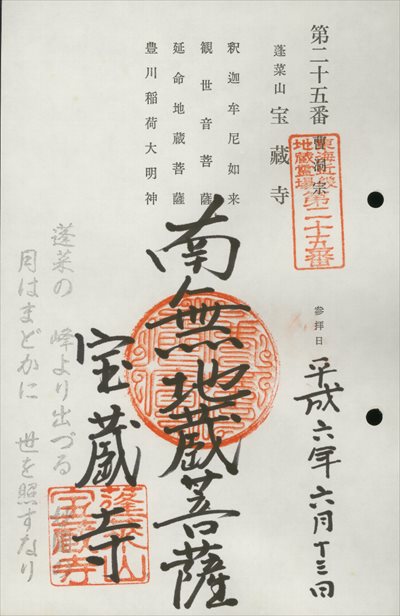 第二十五番
曹洞宗
蓬莱山 宝蔵寺
東海近畿
地蔵霊場
第二十五番
参拝日
平成六年六月十三日
釈迦牟尼如来
観世音菩薩
延命地蔵菩薩
豊川稲荷大明神
南無地蔵菩薩
宝蔵寺
蓬莱山
宝蔵寺
蓬莱の 峰より出づる
月はまどかに 世を照すなり